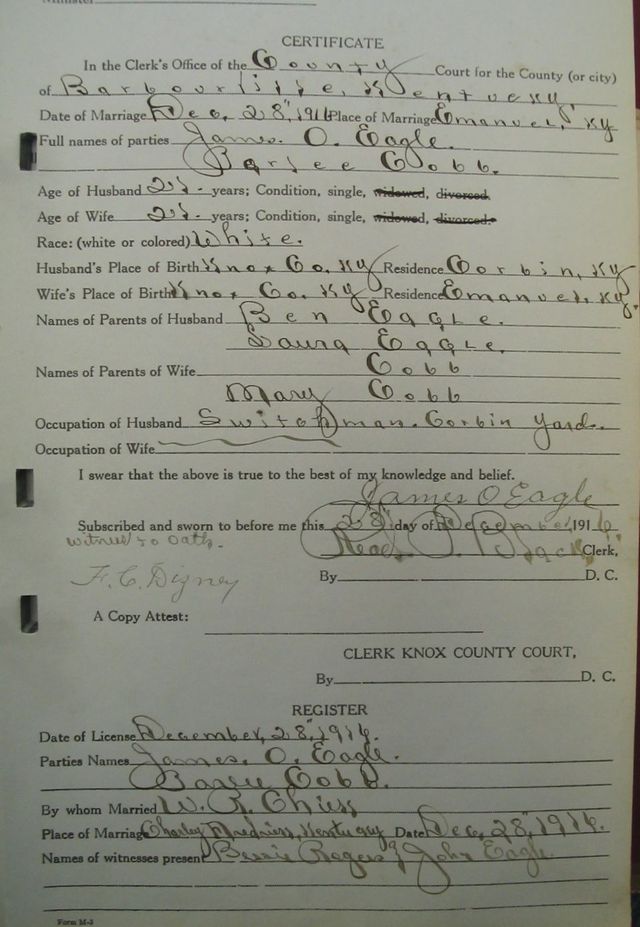 CERTIFICATE
In the Clerk's Office of the County Court for the County (or city)
of Barbourville, Kentucky,
Date of Marriage Dec. 28", 1916 Place of Marriage Emanuel, Ky
Full names of parties James. O. Eagle.
Cobb.
Age of Husband 21. years; Condition, single, widowed, divorced.
Age of Wife 21. years; Condition, single, widowed, divorced.
Race: (white or colored) White.
Husband's Place of Birth Knox Co. Ky Residence Corbin, Ky
Wife's Place of Birth Knox Co. Ky Residence Emanuel, Ky.
Names of Parents of Husband Ben Eagle.
Laura Eagle.
Names of Parents of Wife Cobb
Mary Cobb
Occupation of Husband Switchman. Corbin Yard.
Occupation of Wife
I swear that the above is true to the best of my knowledge and belief.
James O Eagle
Subscribed and sworn to before me this 28" day of December, 1916
Witness to Oath. Read P. Black Clerk,
F. C. Digney By D. C.
A Copy Attest:
CLERK KNOX COUNTY COURT,
By D. C.
REGISTER
Date of License December, 28", 1916.
Parties Names James. O. Eagle.
Cobb.
By whom Married W. R.
Place of Marriage Kentucky Date Dec, 28", 1916.
Names of witnesses present Bessie Rogers & John Eagle.
Form M-3